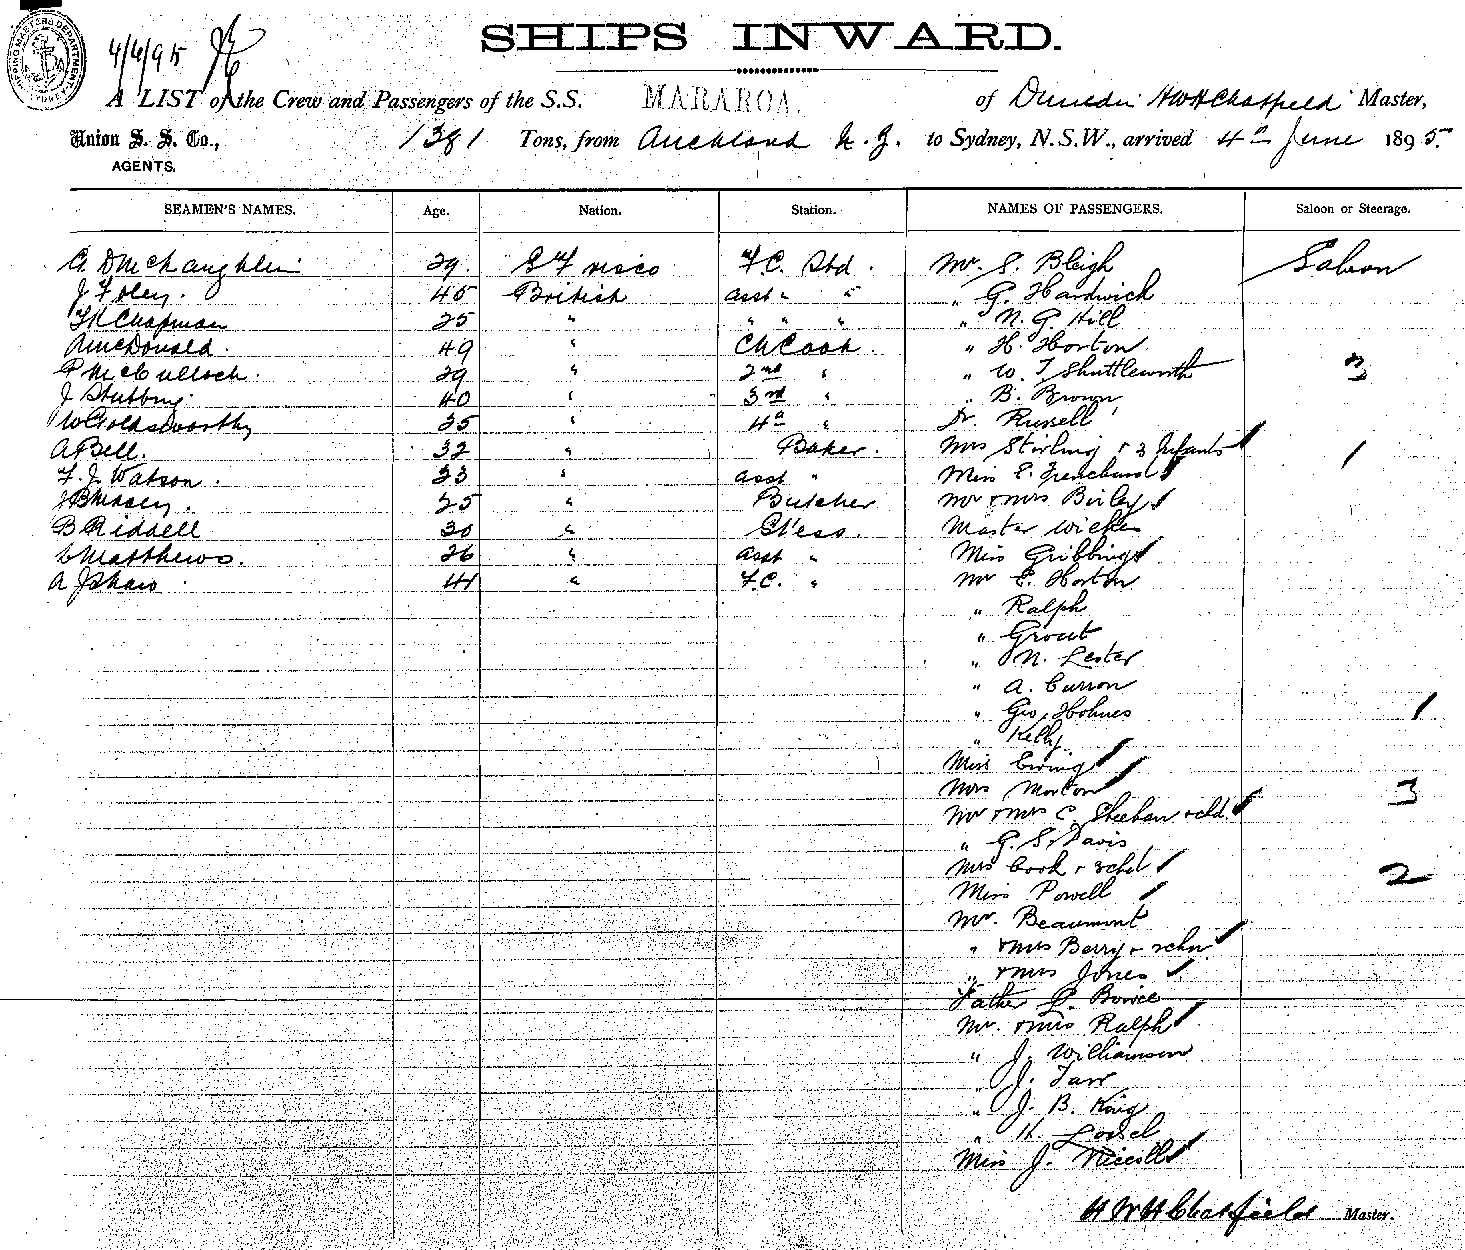 4/6/95
SHIPS INWARD.
A LIST of the Crew and Passengers of the S.S. MARAROA. of Dunedin HWHChatfield Master,
Union S. S. Co., 1381 Tons, from Auckland N. Z. to Sydney, N.S.W., arrived 4th June 1895.
AGENTS.
SEAMEN'S NAMES. Age. Nation. Station. NAMES OF PASSENGERS. Saloon or Steerage.
29. S Frisco F.C. Std. Mr. S. Bleigh Saloon
J Foley. 45 British asst " " " G. Hardwick
Chapman 25 " " " " " N. G. Hill
A McDonald. 49 " Ch Cook. " H. Horton
P McCulloch. 29 " 2nd " " W. T Shuttleworth 3
J Stubbing. 40 " 3rd " " B. Brown
W Goldsworthy 35 " 4th " Dr. Russell
A Bell. 32 " Baker. Mrs Stirling & 3 Infants 1
F. J. Watson. 33 " asst " Miss E.
25 " Butcher Mr & Mrs Birley
B Riddell 30 " St'ess. Master
Matthews. 26 " asst " Miss Gribbings
A J Shaw 41 " F.C. " Mr E. Horton
" Ralph
" Grout
" N. Lester
" A. Curron
" Geo. Holmes 1
" Kelly
Miss Ewing
Mrs Morton 3
Mr & Mrs C. Sheehan & chld
" G. S. Davis
Mrs Cook & 3 chd 2
Miss Powell
Mr. Beaumont
" & Mrs Berry & 2 chn
" & Mrs Jones
Father
Mr. & Mrs Ralph
" J. Williamson
" J. Tarr
" J. B. King
" H.
Miss J. Niccolls
HWHChatfield Master.